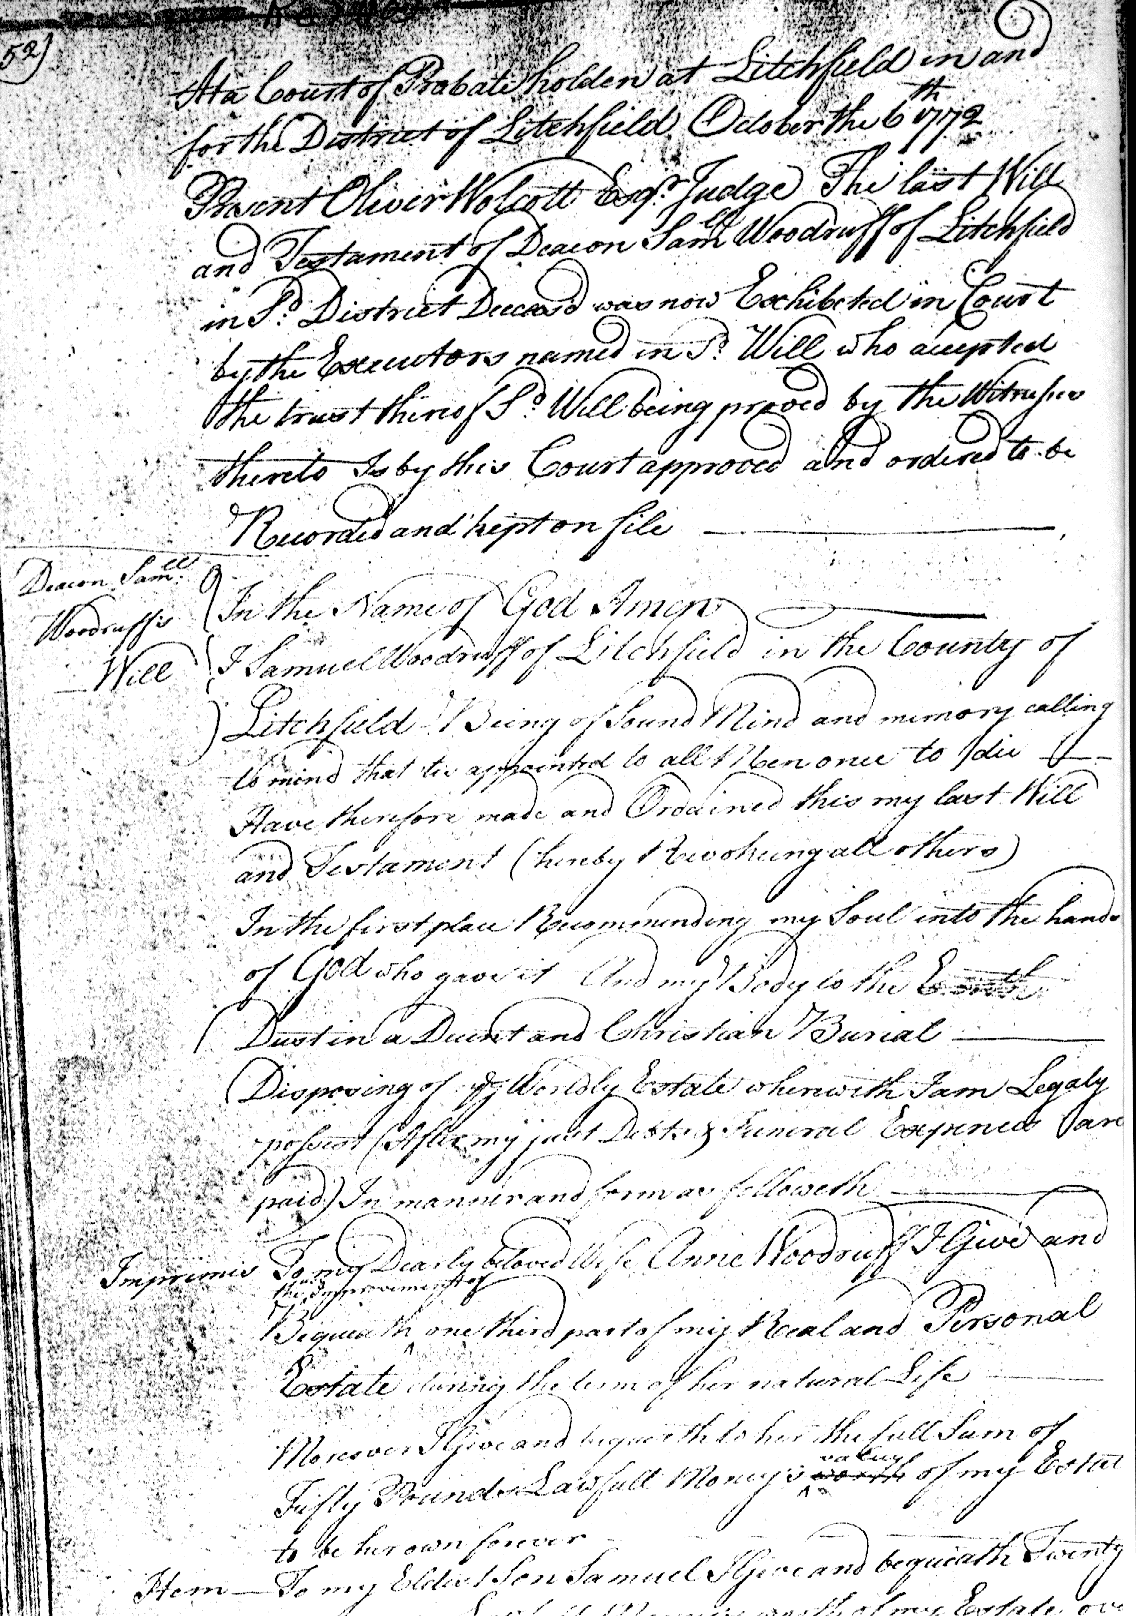 52)
At a Court of Probate holden at Litchfield in and
for the District of Litchfield October the 6th 1772
Present Oliver Wolcott Esqr. Judge The last Will
and Testament of Deacon Samll Woodruff of Litchfield
in Sd. District Deceasd was now Exhibited in Court
by the Executors named in Sd. Will who accepted
the trust thereof Sd. Will being proved by the Witnesses
thereto Is by this Court approved and ordered to be
Recorded and kept on file
Deacon Samll.
Woodruff's
Will
In the Name of God Amen
I Samuel Woodruff of Litchfield in the County of
Litchfield Being of Sound Mind and memory calling
to mind that tis appointed to all Men once to die
Have therefore made and Ordained this my last Will
and Testament (hereby Revokeing all others)
In the first place Recommending my Soul into the hands
of God who gave it And my Body to the Earth
Dust in a Decent and Christian Burial
Disposing of Worldly Estate wherewith I am Legaly
possest (After my just Debts & Funeral Expences are
paid) In manner and form as followeth
Imprimis To my Dearly beloved Wife Anne Woodruff I Give and
the improvement of
Bequeath one third part of my Real and Personal
Estate during the term of her natural Life
Moreover I Give and bequeath to her the full Sum of
value
Fifty Pounds Lawfull Money's worth of my Estate
to be her own forever
Item To my Eldest Son Samuel I Give and bequeath Twenty
worth of my Estate over